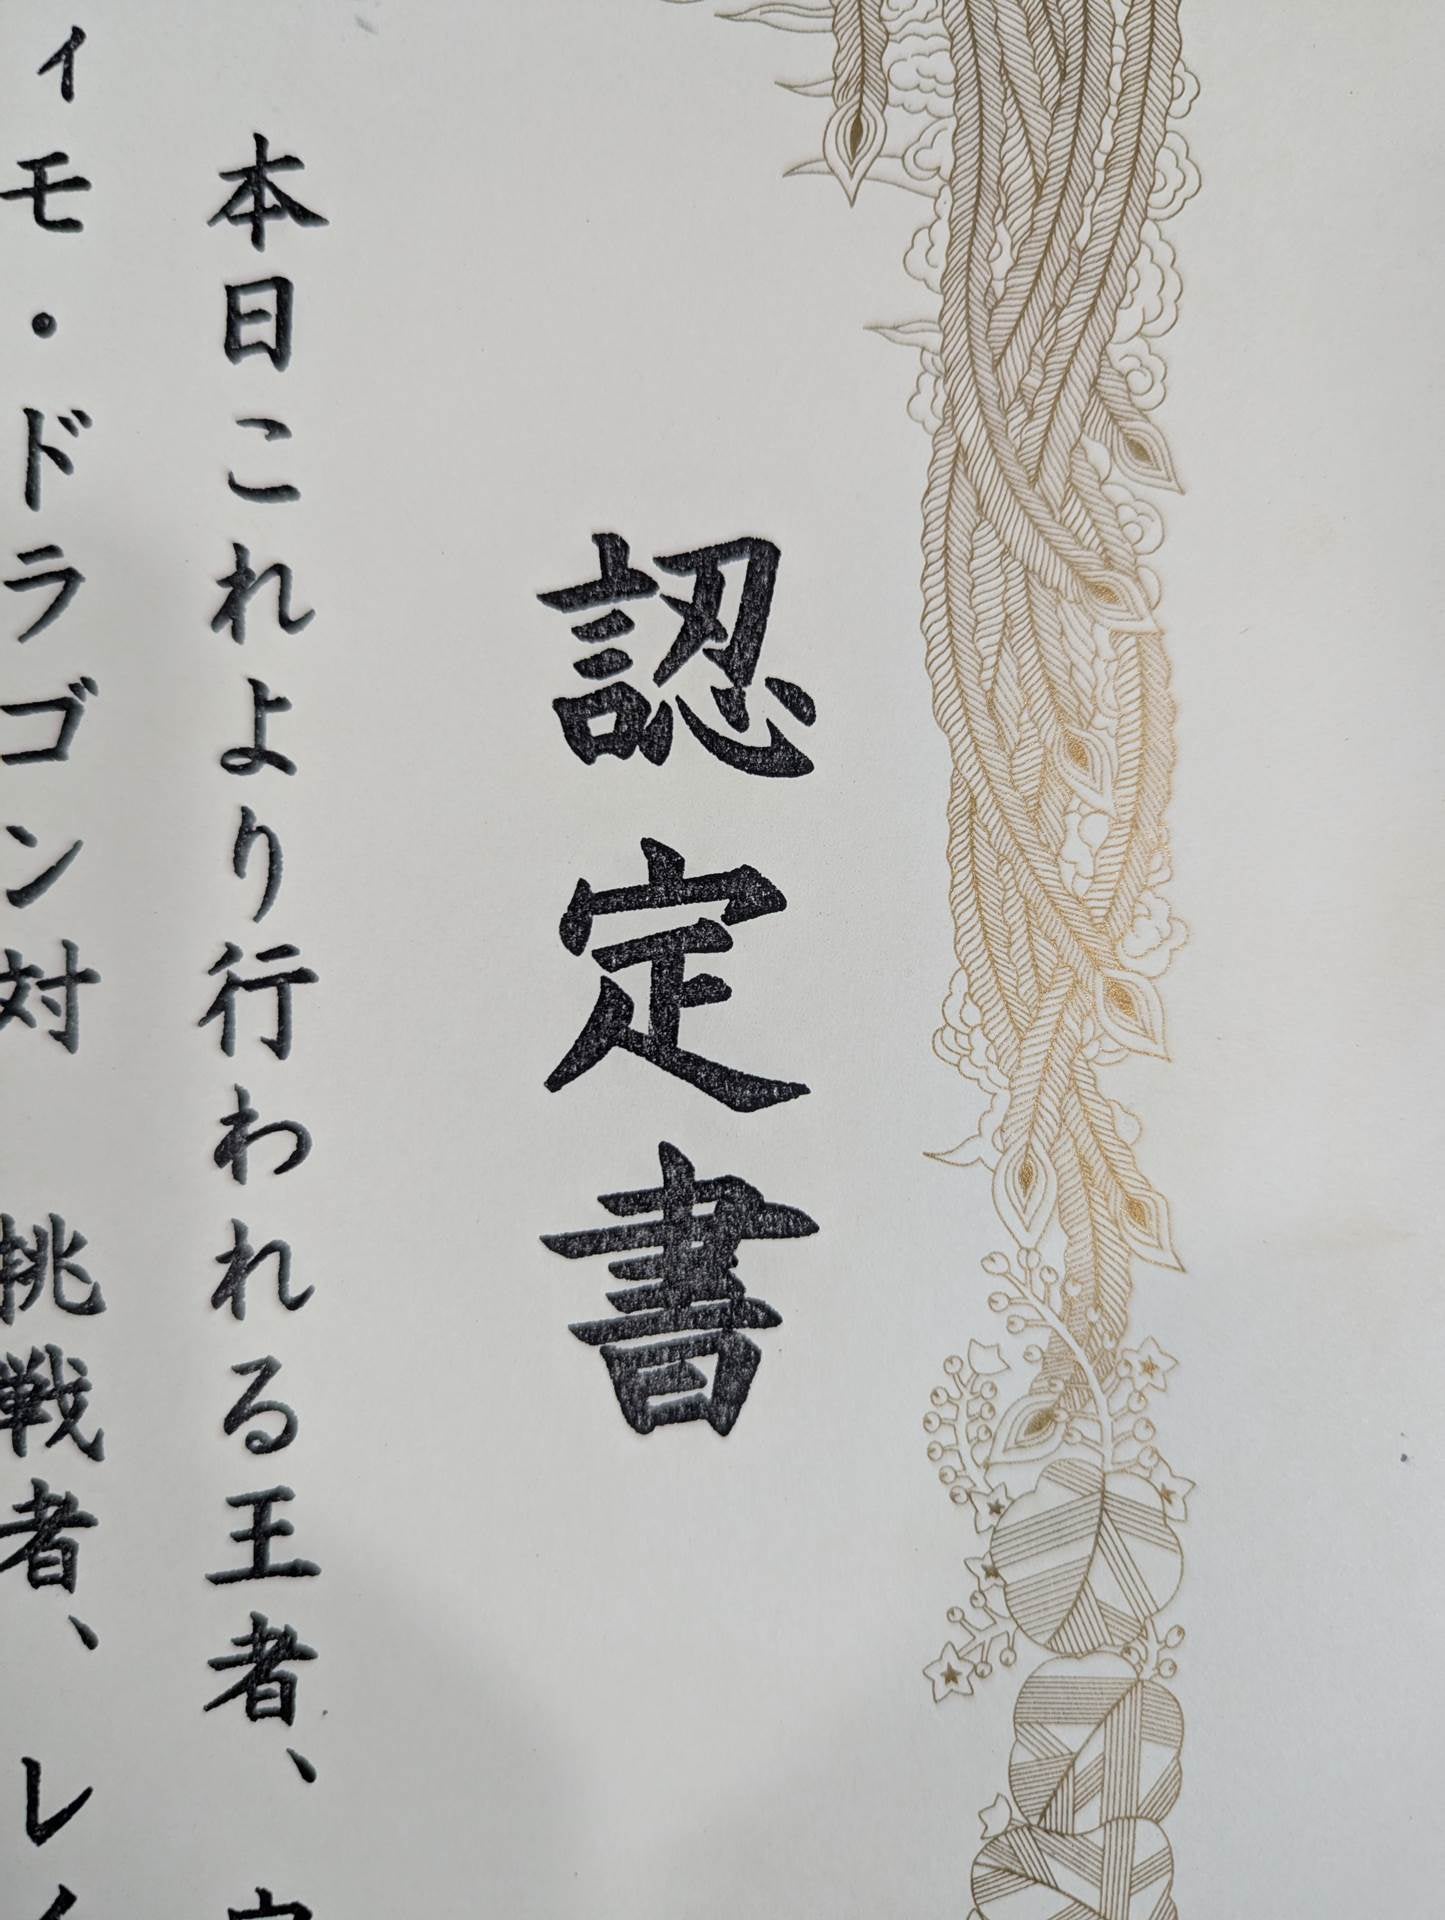 認定書
本日これより行われる王者、
ィモ・ドラゴン対 挑戦者、レイ